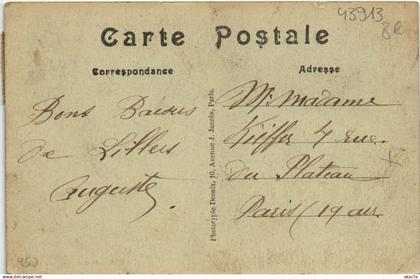 43913
BR
Carte Postale
Correspondance
Adresse
Bons Baisers
de Lillers
Auguste
Mr Madame
Kieffer 4 rue
du Plateau
Paris (19 arr.
Phototypie Desaix, 10, Avenue J. Jaurès, Paris.
950